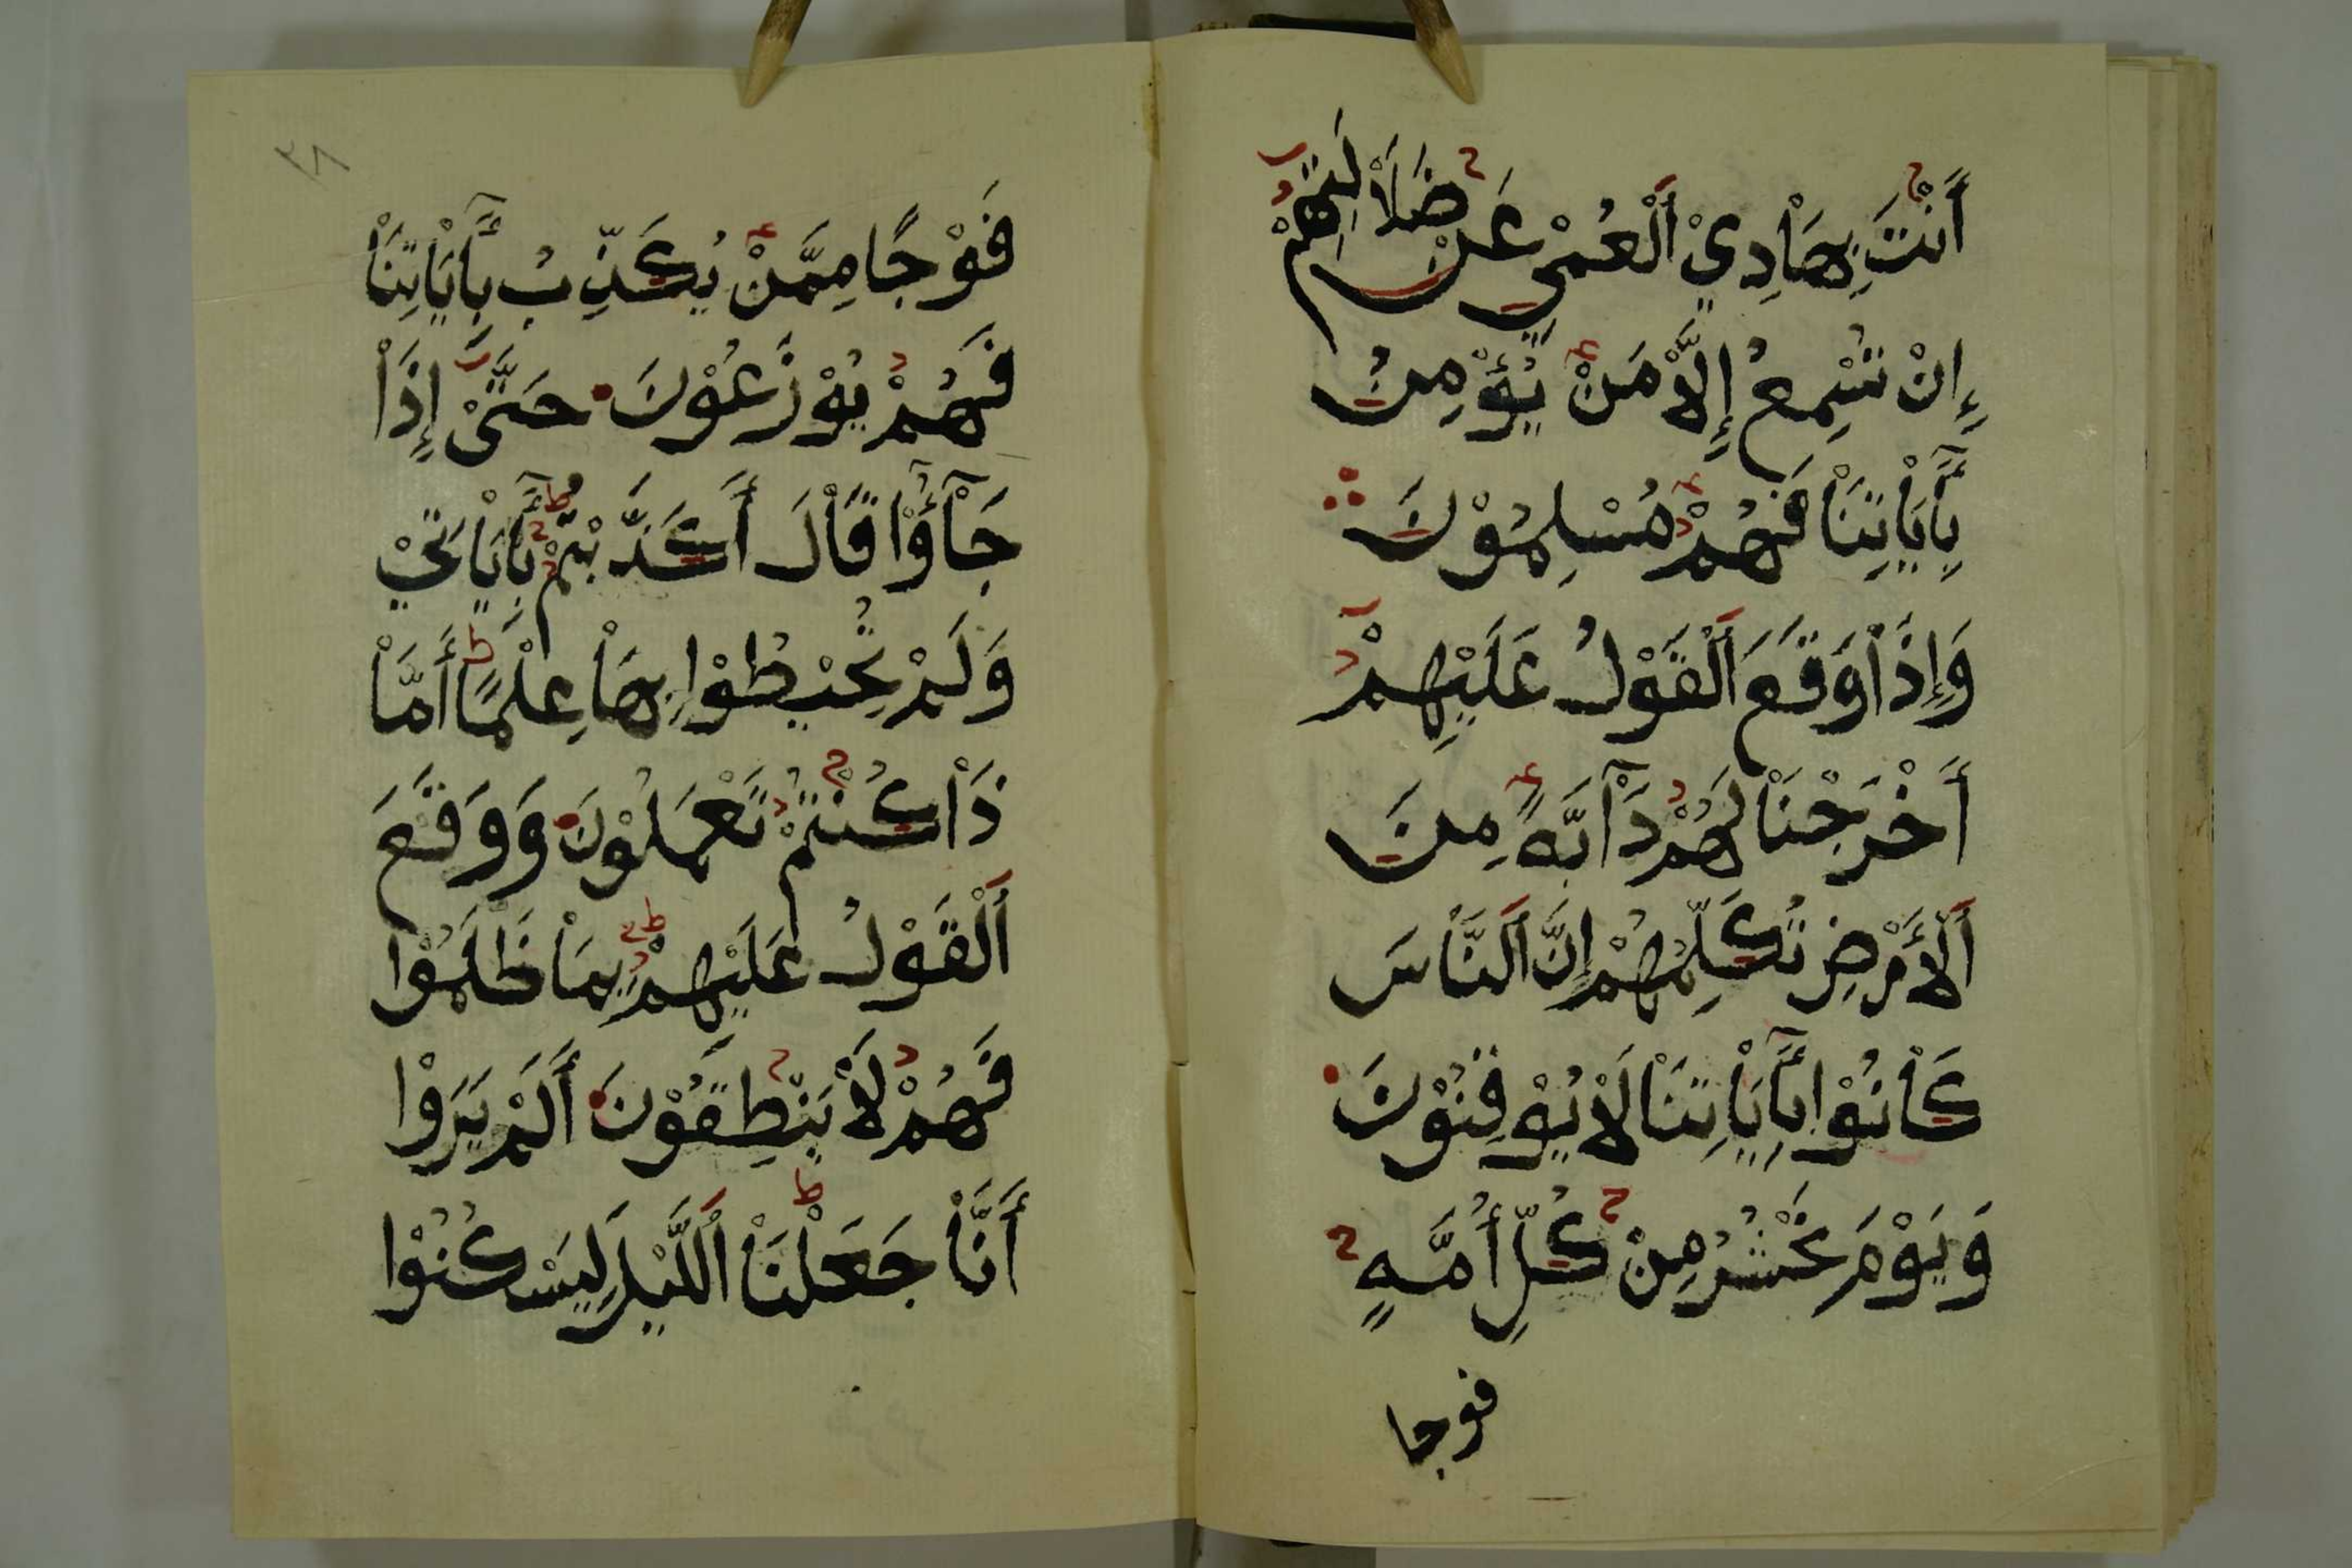 أَنْتَ بِهَاْدِيْ اَلْعُمْيِ عَنْ ضَلَاْلَتِهِمْ
إِنْ تُسْمِعُ إِلَّاْ مَنْ يُؤْمِنُ
بِأَيَاْتِنَاْ فَهُمْ مُسْلِمُوْنَ
وَإِذَاْ وَقَعَ اَلْقَوْلُ عَلَيْهِمْ
أَخْرَجْنَاْ لَهُمْ دَاْبَّةً مِنَ
اَلْأَرْضِ تُكَلِّمُهُمْ إِنَّ اَلنَّاْسَ
كَاْنُوْا بِأَيَاْتِنَاْ لَاْ يُوْقِنُوْنَ
وَيَوْمَ نَحْشُرُ مِنْ كُلِّ أُمَّةٍ
فوجا
٣٨
فَوْجًا مِمَّنْ يُكَذِّبُ بِأَيَاْتِنَاْ
فَهُمْ يُوْزَعُوْنَ حَتَّىْ إِذَاْ
جَاْؤُاْ قَاْلَ أَكَذَّبْتُمْ بِأَيَاْتِيْ
وَلَمْ تُحِيْطُوْا بِهَاْ عِلْمًا أَمَّاْ
ذَاْ كُنْتُمْ تَعْمَلُوْنَ وَوَقَعَ
اَلْقَوْلُ عَلَيْهِمْ بِمَاْ ظَلَمُوْا
فَهُمْ لَاْ يَنْطِقُوْنَ أَلَمْ يَرَوْا
أَنَّاْ جَعَلْنَاْ اَللَّيْلَ لِيَسْكُنُوْا